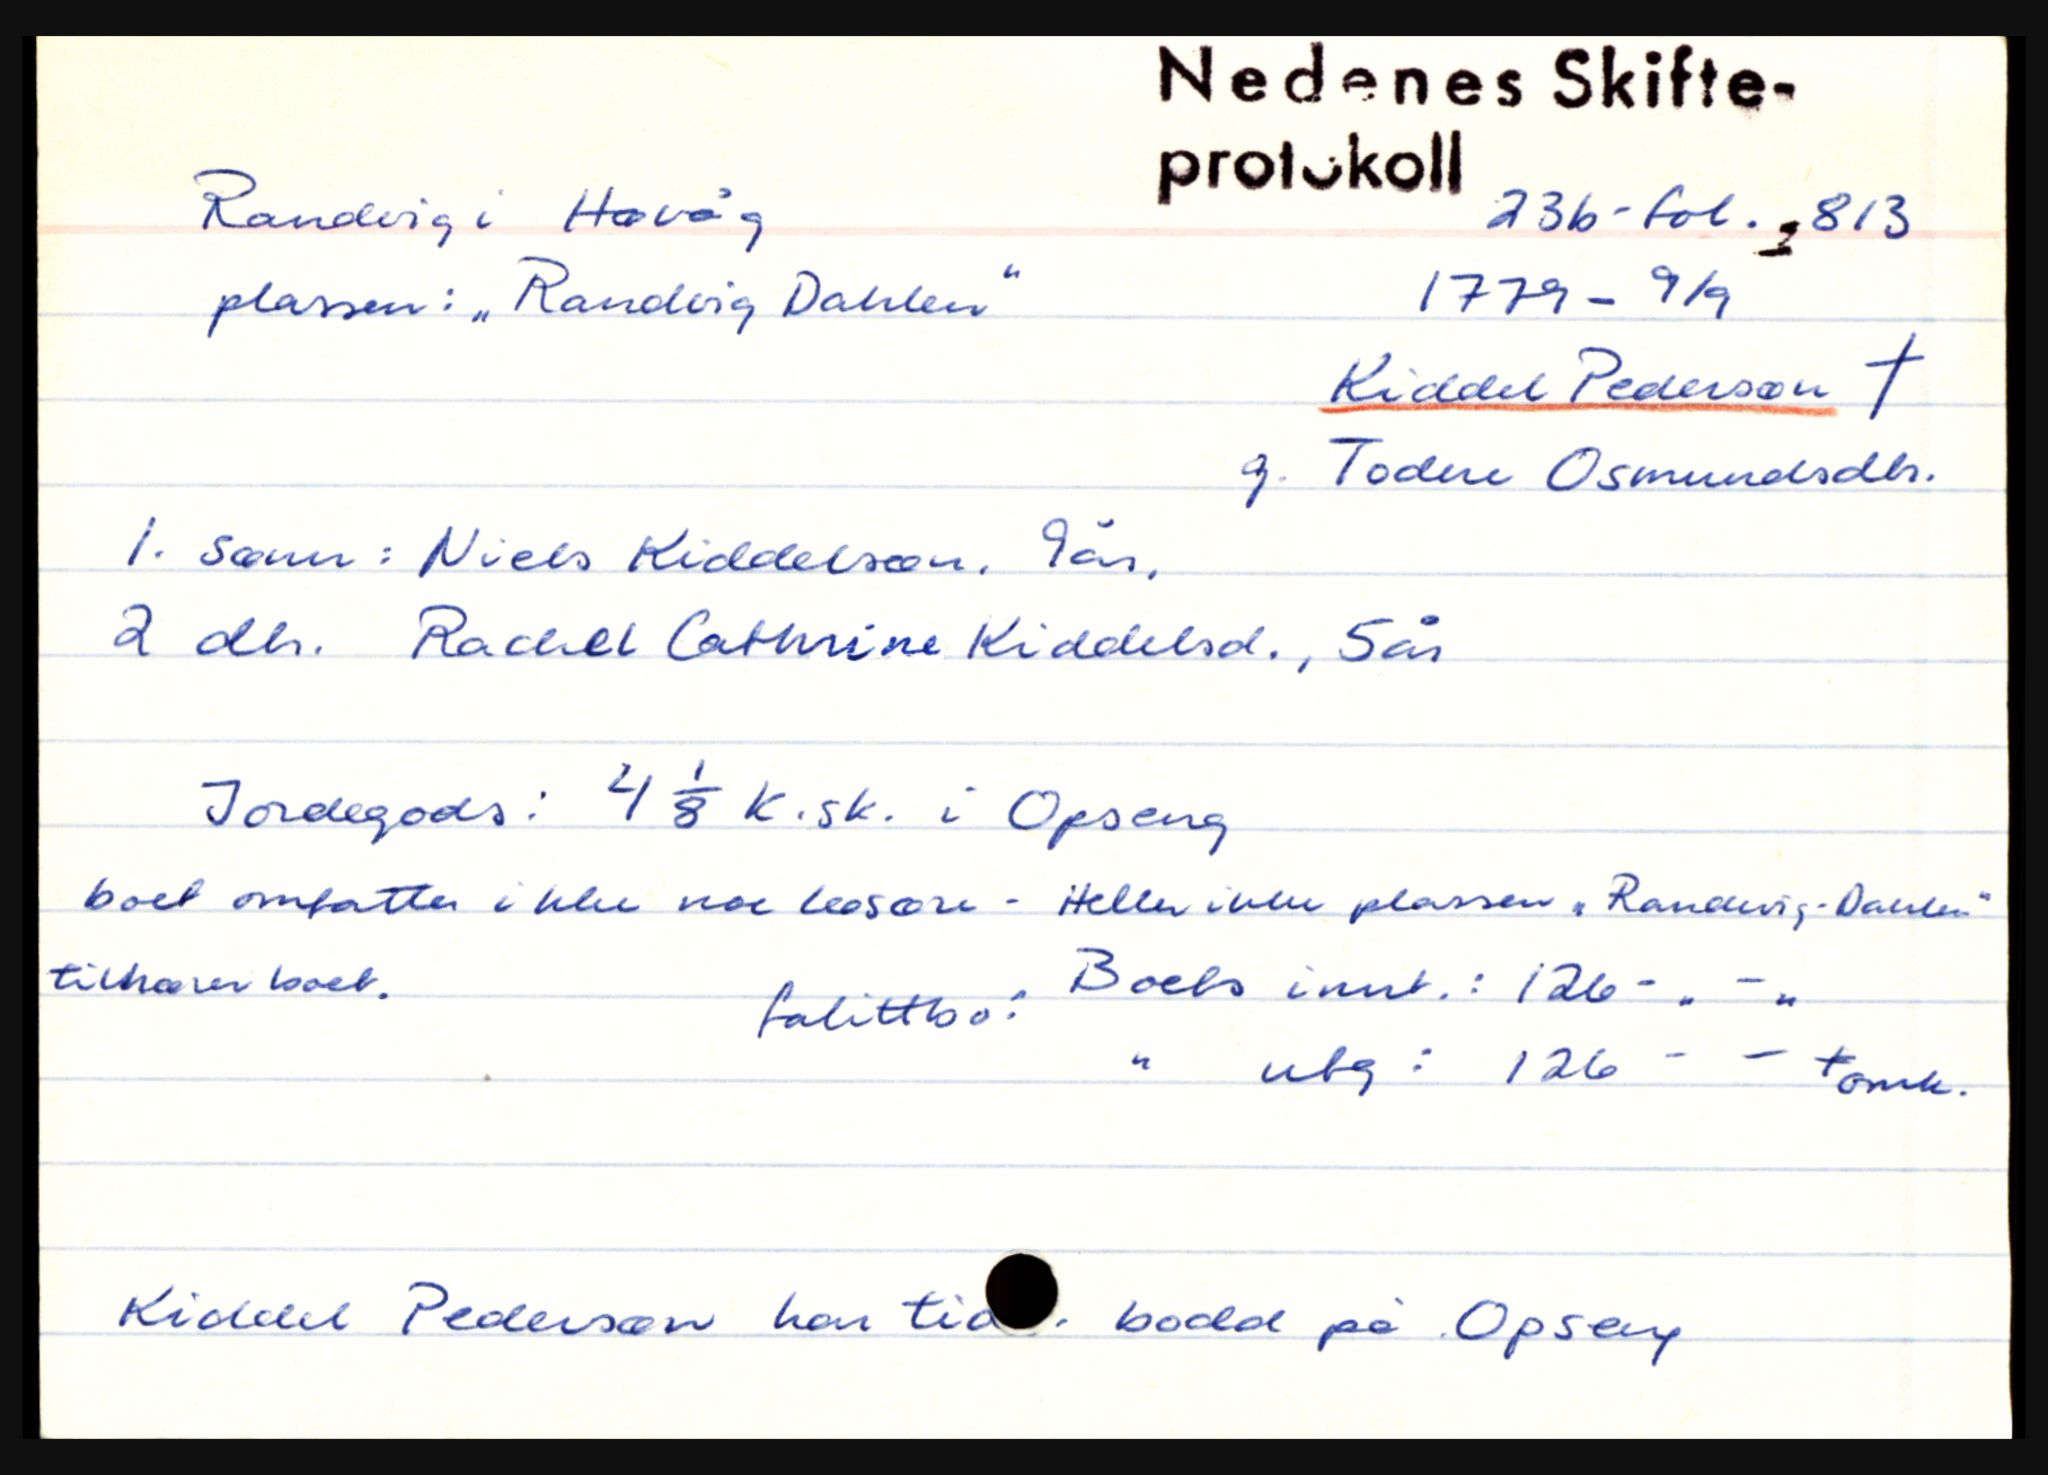 Nedenes Skifte-
protokoll
Randvig i Høvåg
23b - fol. 813
plassen: „Randvig Dahlen"
1779 - 9/9
Kiddel Pedersøn †
g. Todere Osmundsdtr.
1. sønn: Niels Kiddelsøn. 9 år.
2 dtr. Rachel Cathrine Kiddelsd., 5 år
Jordegods: 4 1/8 k.sk. i Opseng
boet omfatter ikke noe løsøre - Heller ikke plassen „Randvig-Dahlen"
tilhører boet.
fallittbo: Boets innt.: 126 - „ - „
" utg: 126 - - + omk.
Kiddel Pedersøn har tid. bodd på Opseng